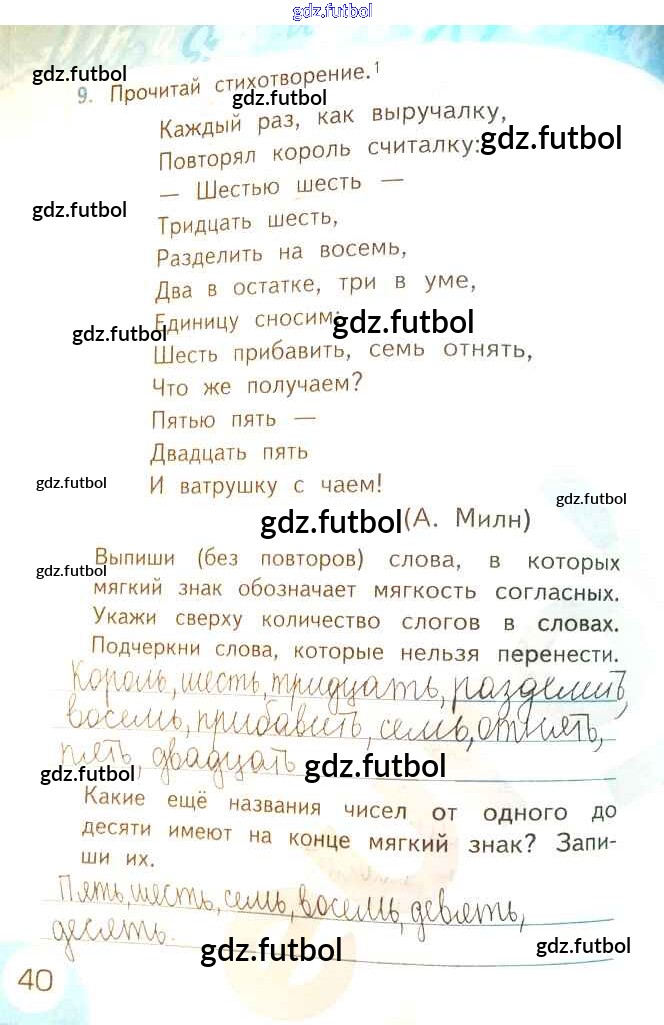 gdz.futbol
gdz.futbol
9. Прочитай стихотворение.¹
gdz.futbol
Каждый раз, как выручалку,
Повторял король считалку:
gdz.futbol
— Шестью шесть —
gdz.futbol
Тридцать шесть,
Разделить на восемь,
Два в остатке, три в уме,
Единицу сносим:
gdz.futbol
gdz.futbol
Шесть прибавить, семь отнять,
Что же получаем?
Пятью пять —
Двадцать пять
И ватрушку с чаем!
gdz.futbol
gdz.futbol
gdz.futbol
(А. Милн)
Выпиши (без повторов) слова, в которых
gdz.futbol
мягкий знак обозначает мягкость согласных.
Укажи сверху количество слогов в словах.
Подчеркни слова, которые нельзя перенести.
Король, шесть, тридцать, разделить,
восемь, прибавить, семь, отнять,
пять, двадцать
gdz.futbol
gdz.futbol
Какие ещё названия чисел от одного до
десяти имеют на конце мягкий знак? Запи-
ши их.
Пять, шесть, семь, восемь, девять,
десять.
gdz.futbol
gdz.futbol
40